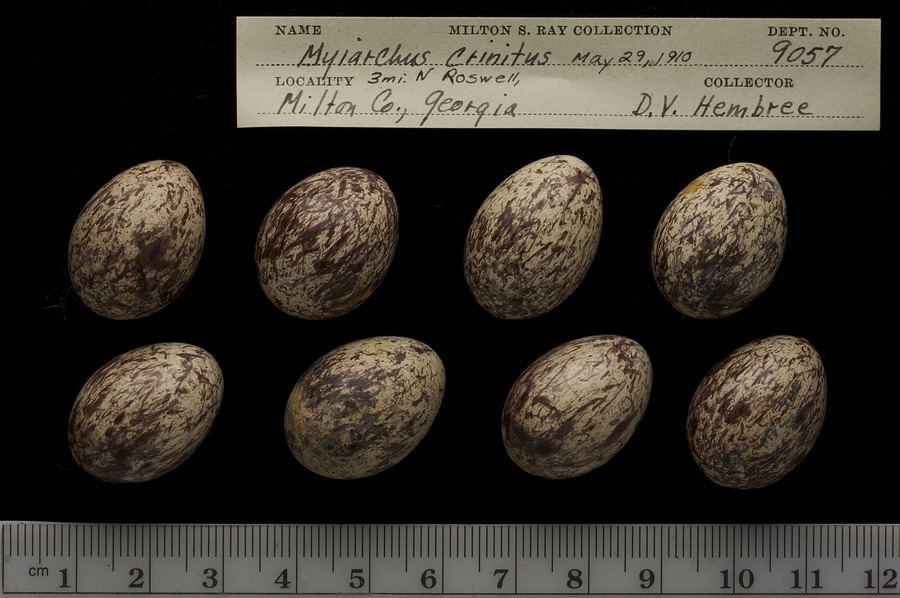 NAME MILTON S. RAY COLLECTION DEPT. NO.
Myiarchus crinitus May 29, 1910 9057
LOCALITY 3mi. N Roswell, COLLECTOR
Milton Co., Georgia D.V. Hembree
cm 1 2 3 4 5 6 7 8 9 10 11 12